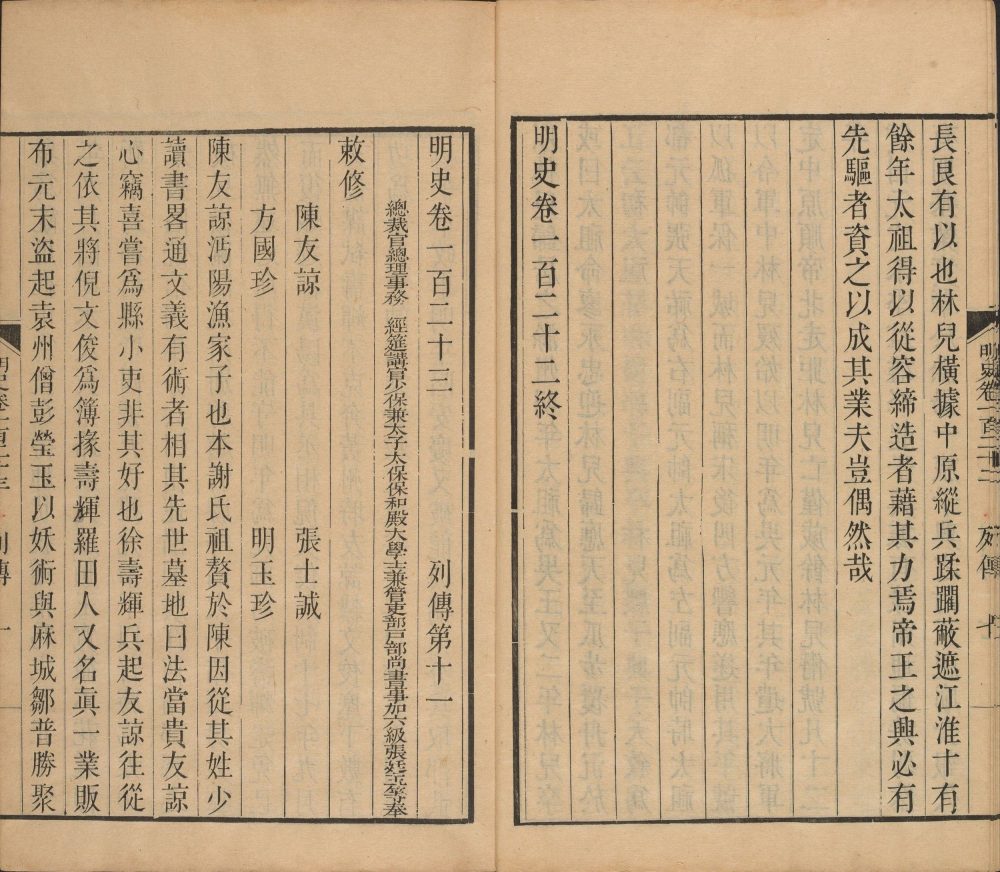 長良有以也林兒橫據中原縱兵蹂躪蔽遮江淮十有
餘年太祖得以從容締造者藉其力焉帝王之興必有
先驅者資之以成其業夫豈偶然哉
明史卷一百二十二終
明史卷一百二十二 列傳
明史卷一百二十三 列傳第十一
總裁官總理事務 經筵講官少保兼太子太保保和殿大學士兼管吏部戶部尚書事加六級張廷玉等奉
敕修
陳友諒 張士誠
方國珍 明玉珍
陳友諒沔陽漁家子也本謝氏祖贅於陳因從其姓少
讀書畧通文義有術者相其先世墓地曰法當貴友諒
心竊喜嘗爲縣小吏非其好也徐壽輝兵起友諒往從
之依其將倪文俊爲簿掾壽輝羅田人又名眞一業販
布元末盜起袁州僧彭瑩玉以妖術與麻城鄒普勝聚
明史卷一百二十三 列傳 一